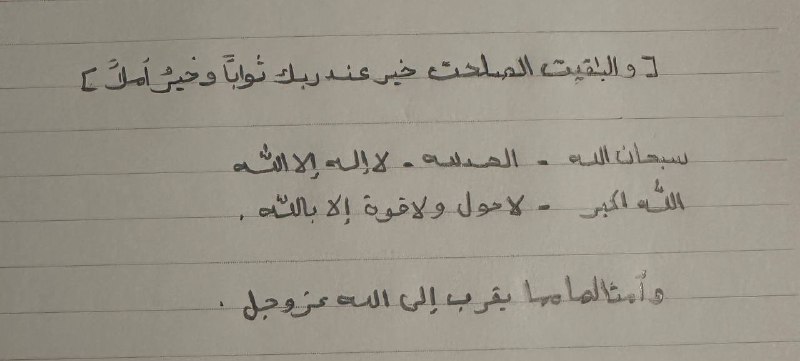 [والبٰقيت الصلحت خير عند ربك ثواباً وخيرُ أملاً]
سبحان الله - الحمدلله - لا إله إلا اللّه
اللّه اكبر - لا حول ولا قوة إلا باللّه .
وأمثالها مما يقرب إلى الله عز وجل .